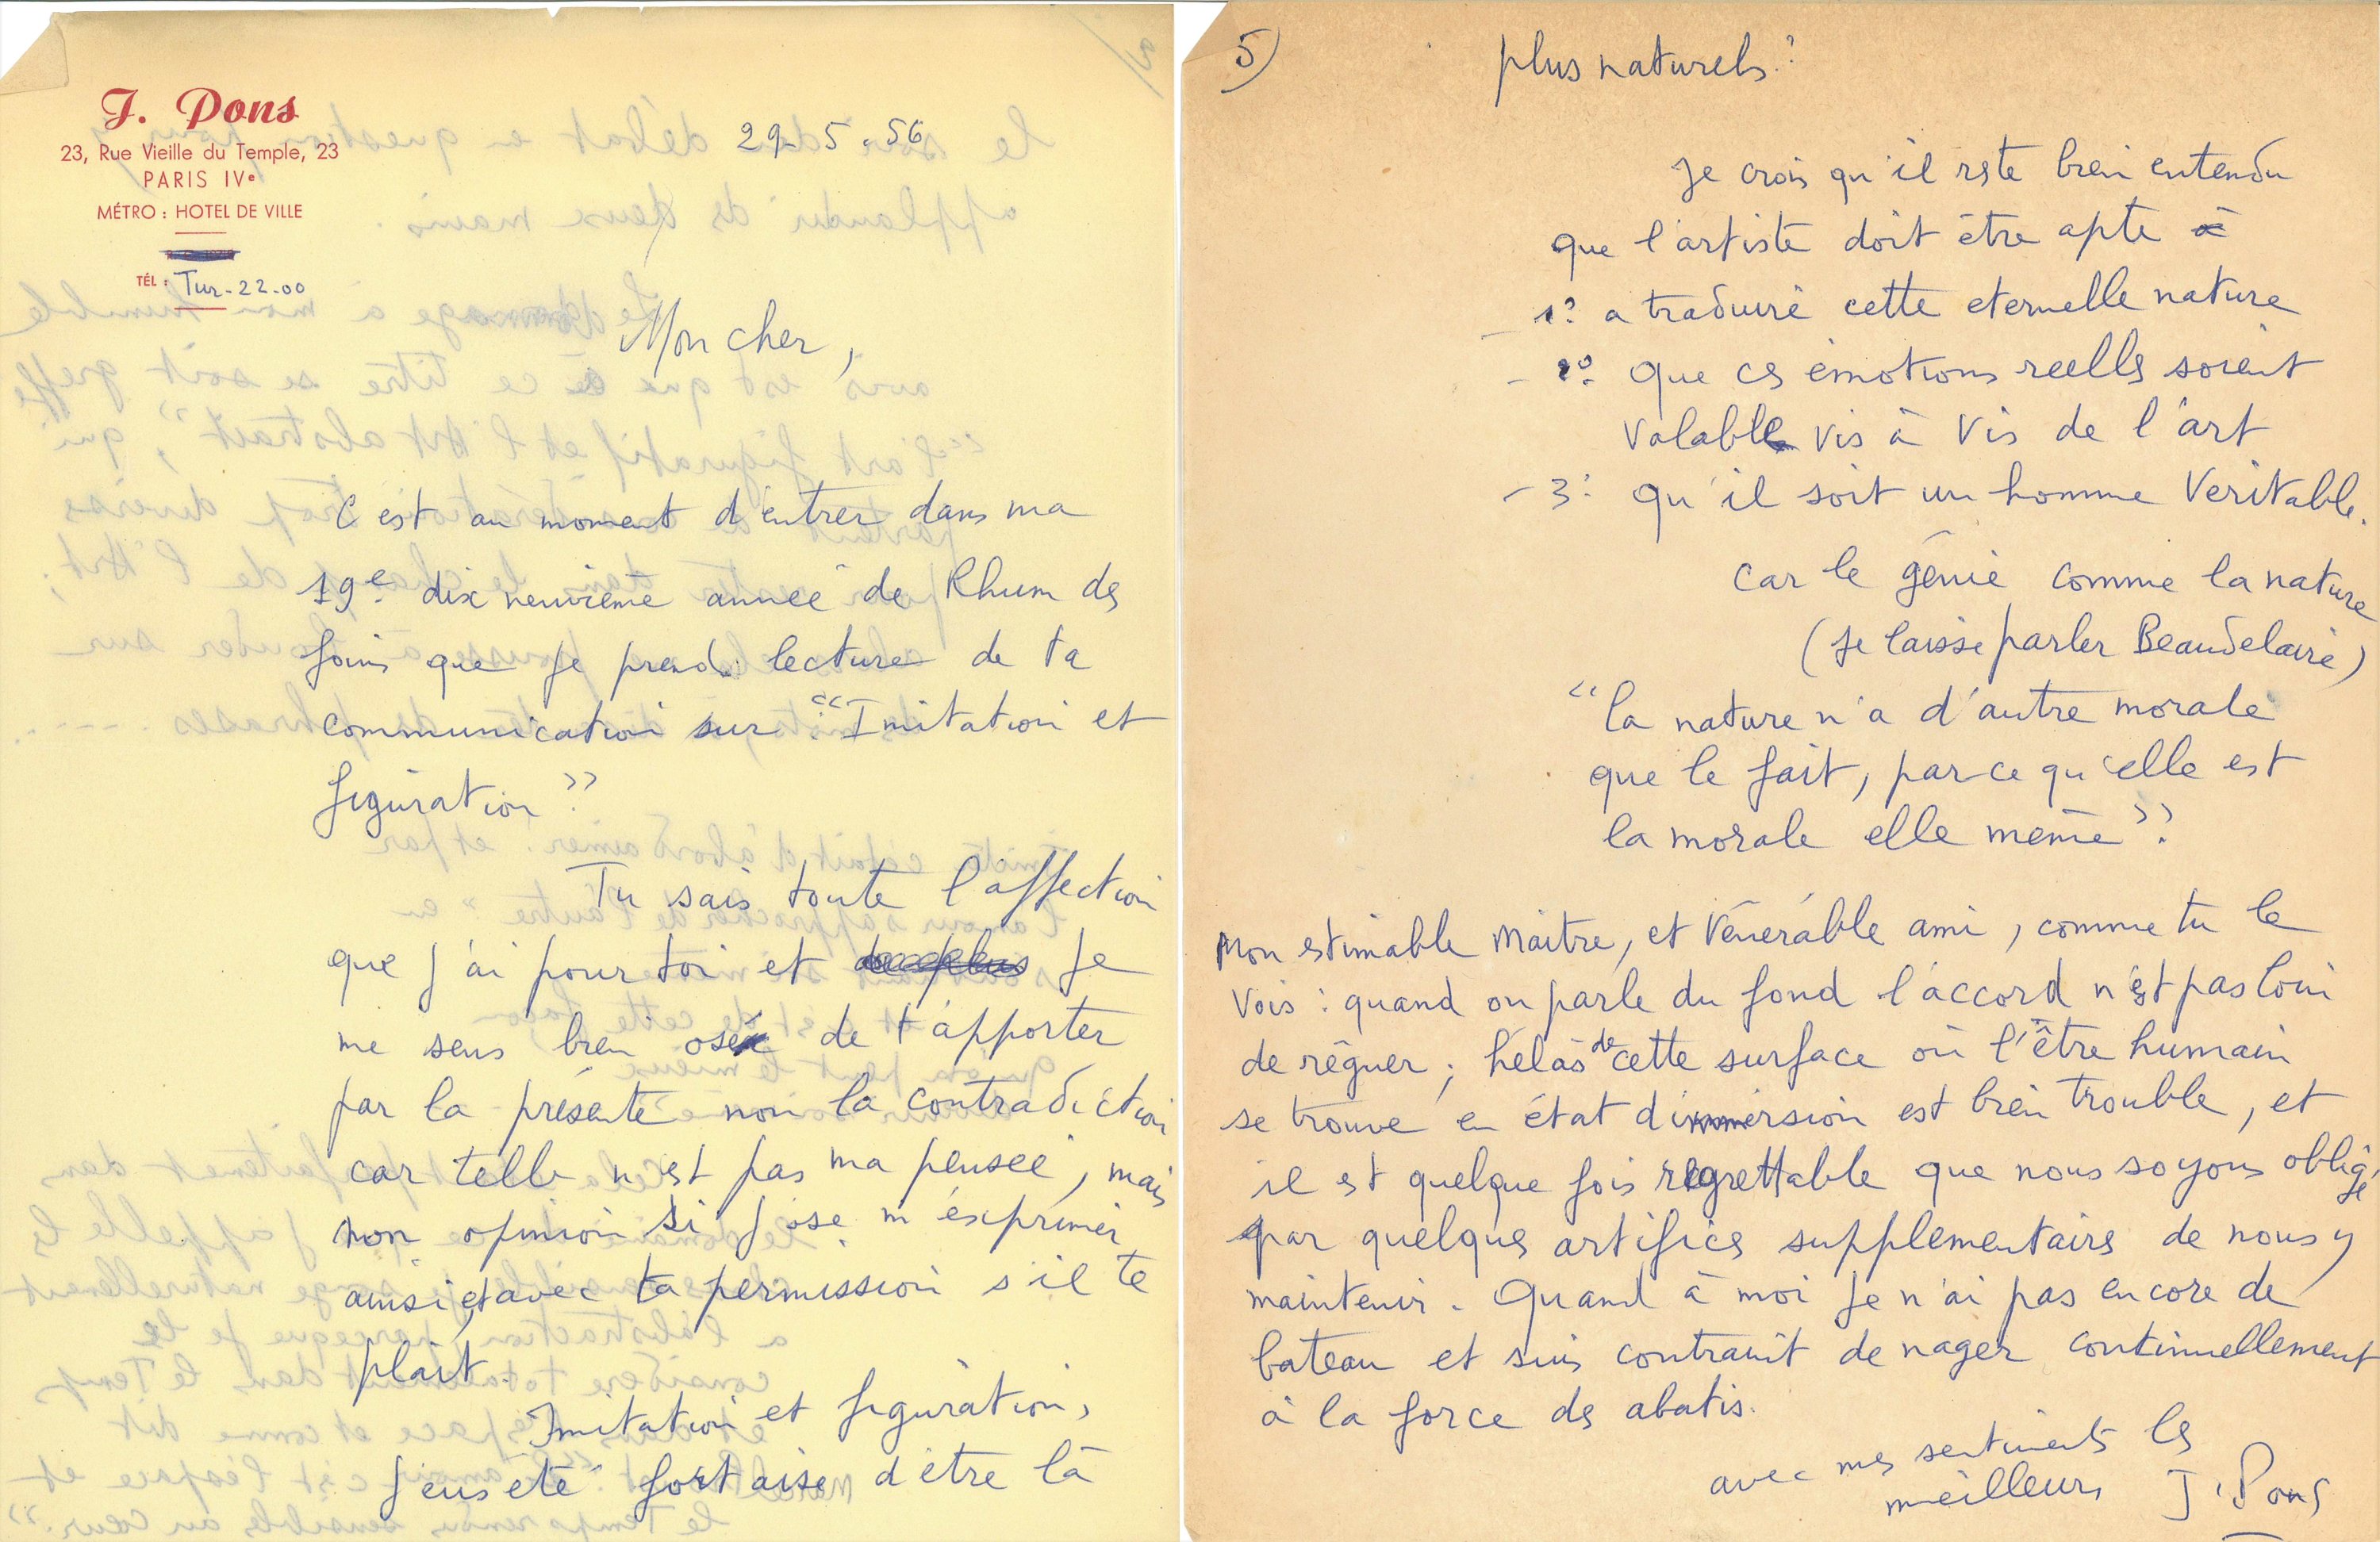 J. Pons
23, Rue Vieille du Temple, 23
PARIS IVe
MÉTRO : HOTEL DE VILLE
TÉL : Tur-22-00
29-5.56
Mon cher,
C'est au moment d'entrer dans ma
19e dix neuvième année de Rhum des
foins que je prends lecture de ta
communication sur "Imitation et
figuration"
Tu sais toute l'affection
que j'ai pour toi et je
me sens bien osé de t'apporter
par la présente non la contradiction
car telle n'est pas ma pensée, mais
mon opinion si j'ose m'éxprimer
ainsi, et avec ta permission s'il te
plait.
Imitation et figuration,
J'eus eté fort aise d'être là
5)
plus naturels.
Je crois qu'il reste bien entendu
que l'artiste doit être apte
- 1° a traduire cette eternelle nature
- 2° que ces émotions reelles soient
valable vis à vis de l'art
- 3° qu'il soit un homme Veritable.
car le génie comme la nature
(je laisse parler Beaudelaire)
"la nature n'a d'autre morale
que le fait, par-ce qu'elle est
la morale elle même".
Mon estimable Maitre, et Vénérable ami, comme tu le
vois : quand on parle du fond l'accord n'est pas loin
de régner ; hélas de cette surface où l'être humain
se trouve en état d'immersion est bien trouble, et
il est quelque fois regrettable que nous soyons obligé
par quelques artifices supplementaires de nous y
maintenir. Quand à moi je n'ai pas encore de
bateau et suis contraint de nager continuellement
à la force des abatis.
avec mes sentiments les
meilleurs J. Pons